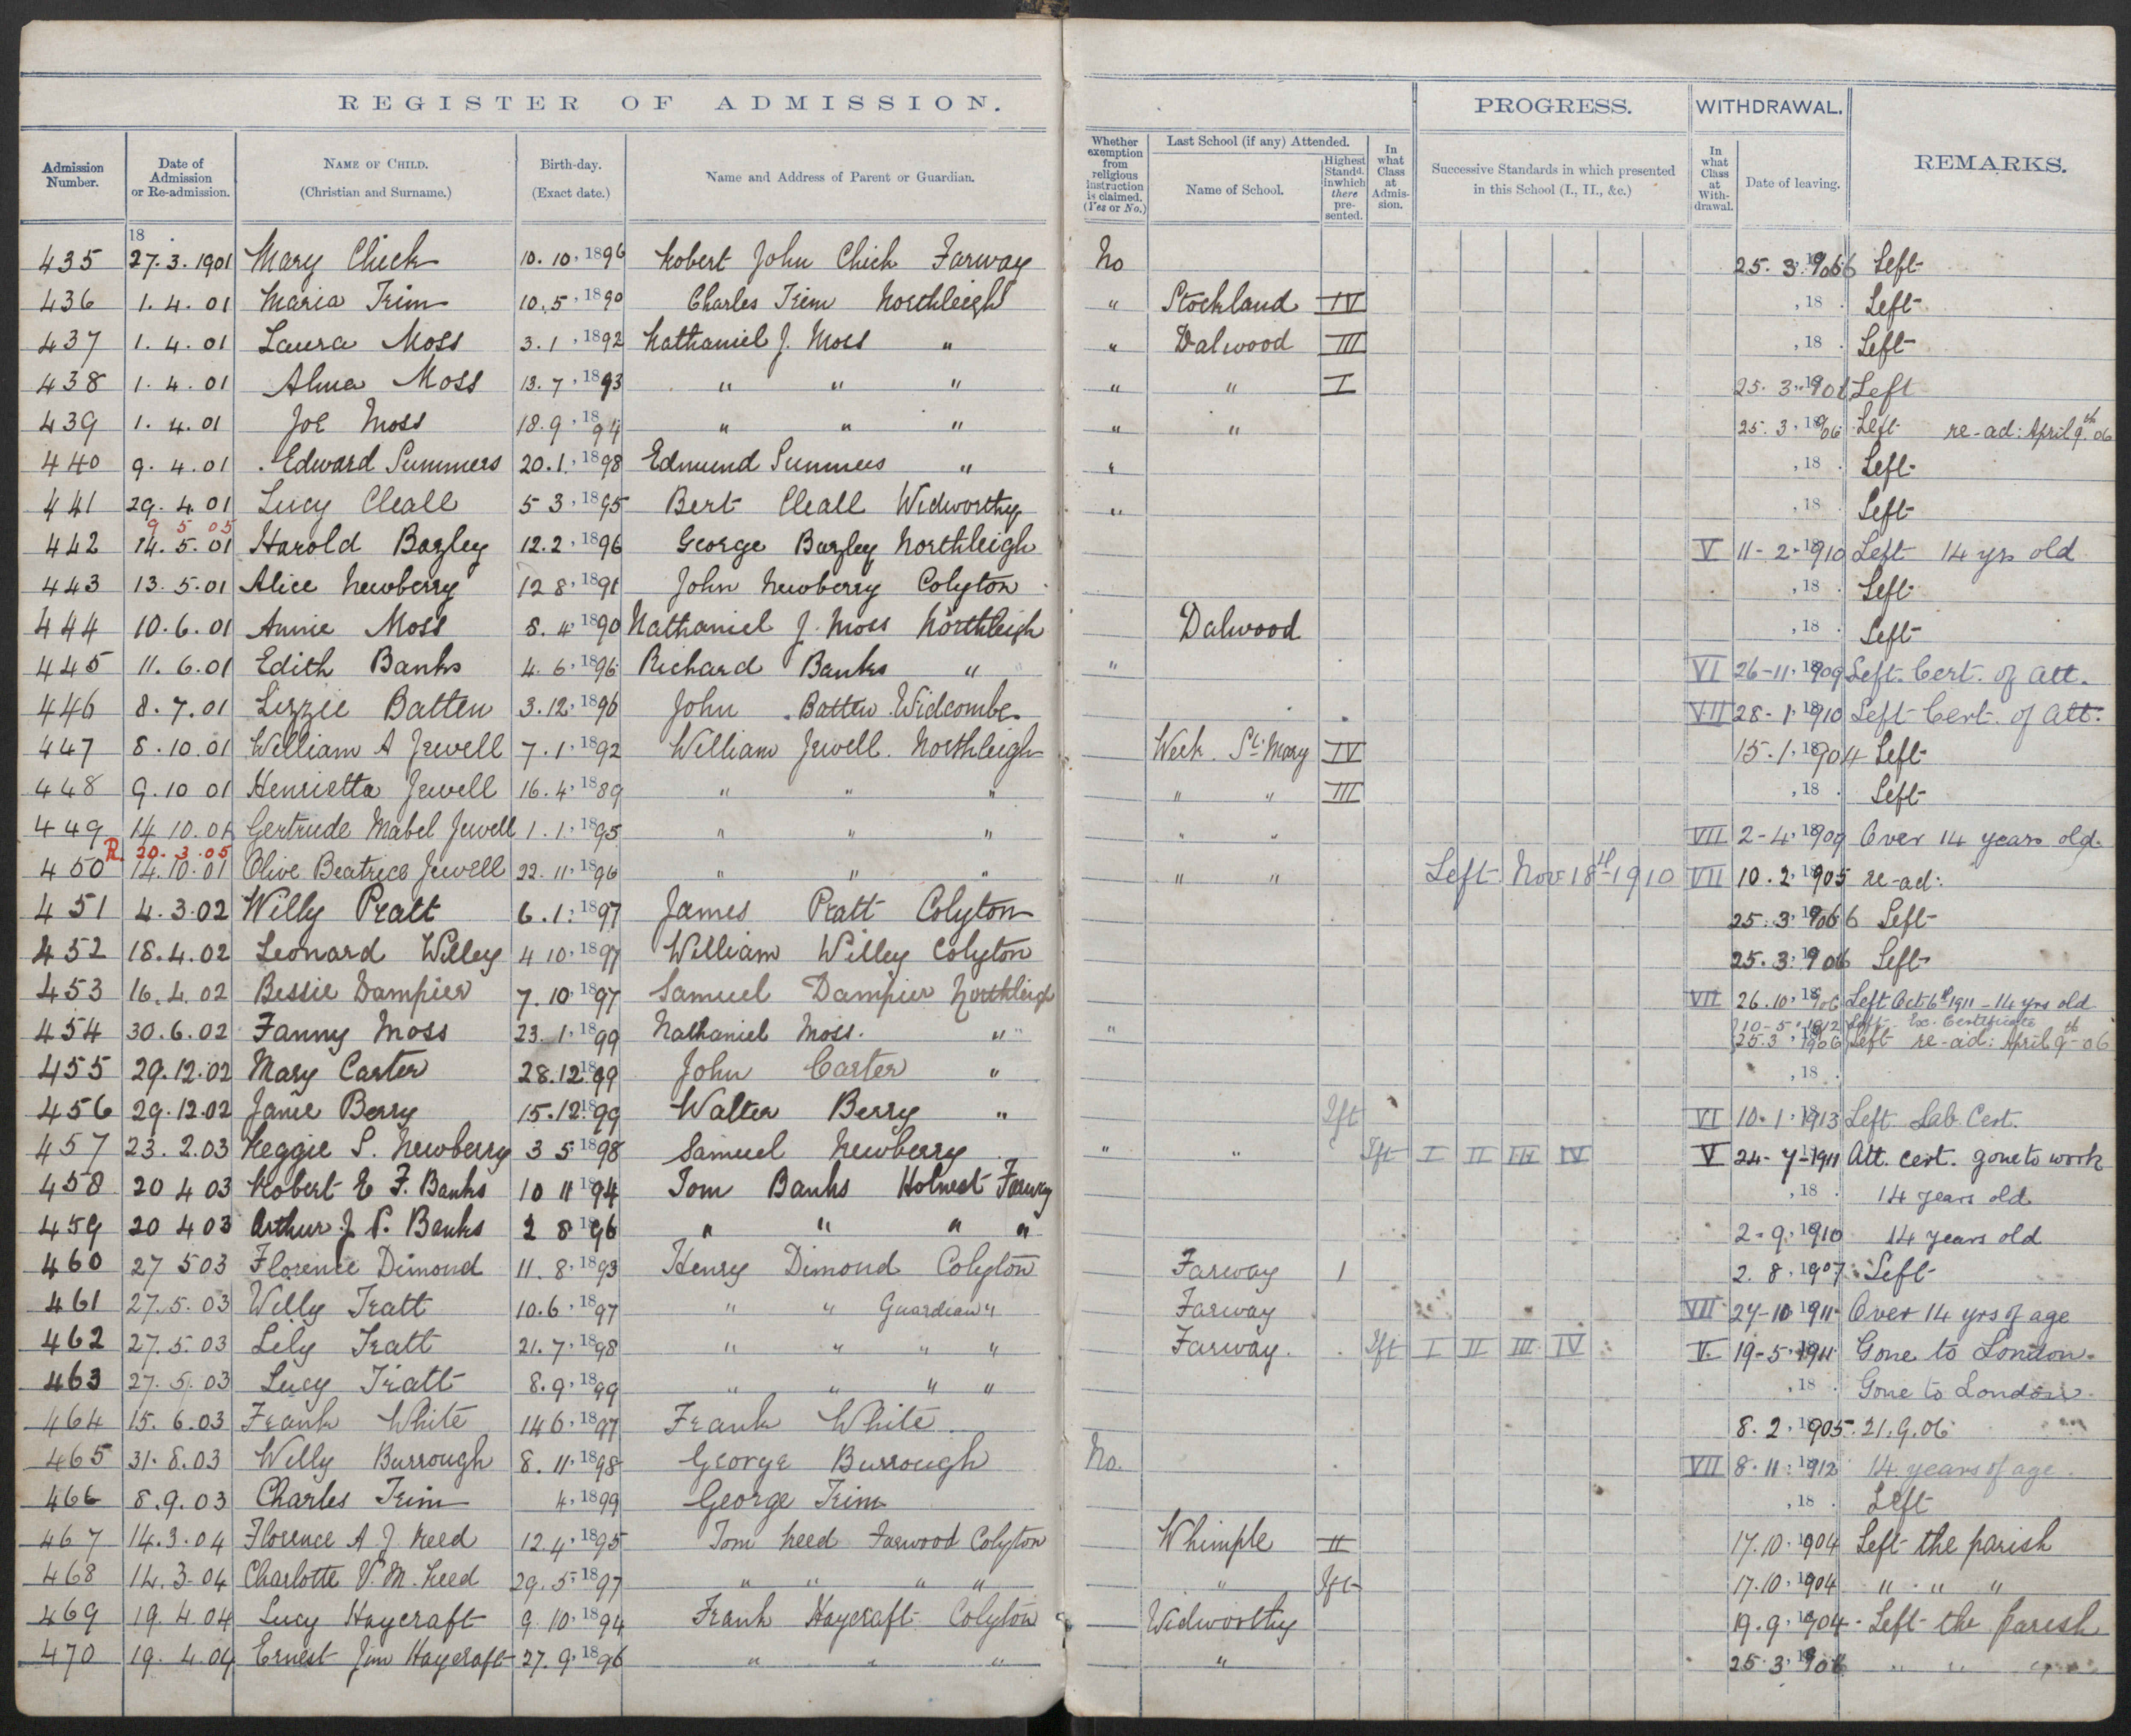 REGISTER OF ADMISSION.
PROGRESS.
WITHDRAWAL.
REMARKS.
Admission Number.
Date of Admission or Re-admission.
NAME OF CHILD. (Christian and Surname.)
Birth-day. (Exact date.)
Name and Address of Parent or Guardian.
Whether exemption from religious instruction is claimed. (Yes or No.)
Last School (if any) Attended.
Name of School.
Highest Standd. in which there presented.
In what Class at Admission.
Successive Standards in which presented in this School (I., II., &c.)
In what Class at Withdrawal.
Date of leaving.
18
435 27.3.1901 Mary Chick 10.10.1896 Robert John Chick Farway No 25.3.1906 Left
436 1.4.01 Maria Trim 10.5.1890 Charles Trim Northleigh " Stockland IV , 18 . Left
437 1.4.01 Laura Moss 3.1.1892 Nathaniel J. Moss " " Dalwood III , 18 . Left
438 1.4.01 Alma Moss 13.7.1893 " " " " " I 25.3.190 Left
439 1.4.01 Joe Moss 18.9.1894 " " " " " 25.3.1906 Left re-ad: April 9th 06
440 9.4.01 Edward Summers 20.1.1898 Edmund Summers " " , 18 . Left
441 29.4.01 Lucy Cleall 5 3.1895 Bert Cleall Widworthy " , 18 . Left
9 5 05
442 14.5.01 Harold Bazley 12.2.1896 George Bazley Northleigh V 11-2-1910 Left 14 yrs old
443 13.5.01 Alice Newberry 12 8.1891 John Newberry Colyton , 18 . Left
444 10.6.01 Annie Moss 8.4.1890 Nathaniel J. Moss Northleigh Dalwood , 18 . Left
445 11.6.01 Edith Banks 4.6.1896 Richard Banks " " VI 26-11-1909 Left. Cert. of Att.
446 8.7.01 Lizzie Batten 3.12.1896 John Batten Widcombe. VII 28-1-1910 Left Cert. of Att.
447 8.10.01 William A Jewell 7.1.1892 William Jewell. Northleigh Week St. Mary IV 15.1.1904 Left
448 9.10 01 Henrietta Jewell 16.4.1889 " " " " " III , 18 . Left
449 14 10.01 Gertrude Mabel Jewell 1.1.1895 " " " " " VII 2-4-1909 Over 14 years old.
R. 20.3.05
450 14.10.01 Olive Beatrice Jewell 22.11.1896 " " " " " Left Nov 18th 1910 VII 10.2.1905 re-ad:
451 4.3.02 Willy Pratt 6.1.1897 James Pratt Colyton 25.3.1906 Left
452 18.4.02 Leonard Willey 4 10.1897 William Willey Colyton 25.3.1906 Left
453 16.4.02 Bessie Dampier 7.10.1897 Samuel Dampier Northleigh VII 26.10.1906 Left Oct 6th 1911 - 14 yrs old
10-5-1912 Left Ex. Certificate
454 30.6.02 Fanny Moss 23.1.1899 Nathaniel Moss. " " 25.3.1906 Left re-ad: April 9th 06
455 29.12.02 Mary Carter 28.12.1899 John Carter " , 18 .
456 29.12.02 Janie Berry 15.12.1899 Walter Berry " Ift VI 10.1.1913 Left Lab. Cert.
457 23.2.03 Reggie S. Newberry 3 5 1898 Samuel Newberry " " Ift I II III IV V 24-7-1911 Att. Cert. gone to work
458 20 4 03 Robert E F. Banks 10 11 1894 Tom Banks Holnest Farway , 18 . 14 years old
459 20 4 03 Arthur J P. Banks 2 8 1896 " " " " 2-9-1910 14 years old
460 27 5 03 Florence Dimond 11.8.1893 Henry Dimond Colyton Farway 1 2.8.1907 Left
461 27.5.03 Willy Tratt 10.6.1897 " " Guardian " Farway VII 27-10-1911 Over 14 yrs of age
462 27.5.03 Lily Tratt 21.7.1898 " " " " Farway. Ift I II III IV V. 19-5-1911 Gone to London.
463 27.5.03 Lucy Tratt 8.9.1899 " " " " , 18 . Gone to London.
464 15.6.03 Frank White 14 6.1897 Frank White 8.2.1905. 21.9.06
465 31.8.03 Willy Burrough 8.11.1898 George Burrough No. VII 8.11.1912 14 years of age.
466 8.9.03 Charles Trim 4.1899 George Trim , 18 . Left
467 14.3.04 Florence A J Reed 12 4.1895 Tom Reed Farwood Colyton Whimple II 17.10.1904 Left the parish
468 14.3.04 Charlotte V. M. Reed 29.5.1897 " " " " " Ift 17.10.1904 " " "
469 19.4.04 Lucy Haycraft 9 10.1894 Frank Haycraft Colyton Widworthy 19.9.1904 Left the parish
470 19.4.04 Ernest Jim Haycraft 27.9.1896 " " " " 25.3.1906 " " "